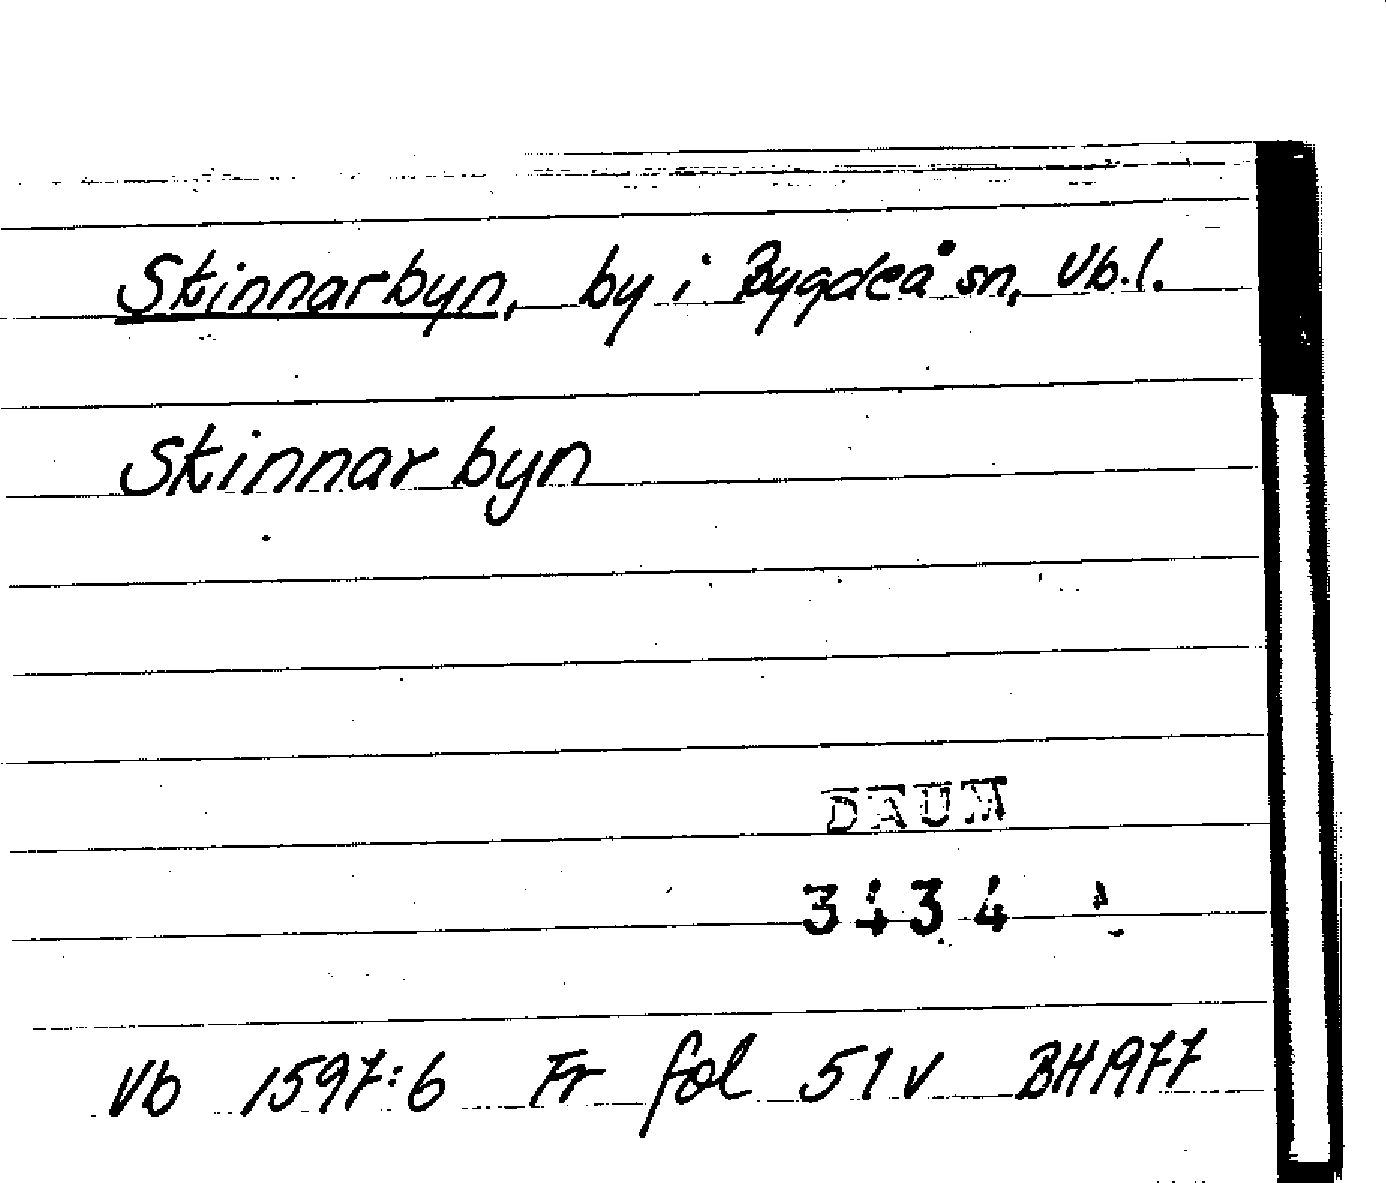 Skinnarbyn, by i Bygdeå sn, Vb.l.
Skinnar byn
DAUM
3434
Vb 1597:6 Fr fol 51 v BH1977